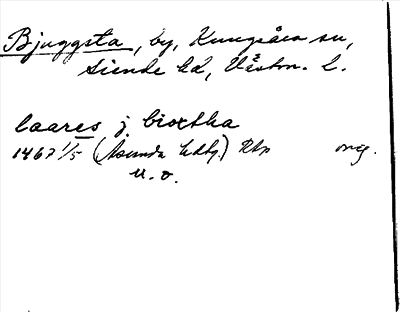 Bjuggsta, by, Kungsåra sn,
Siende hd, Västm. l.
laares j. biwstha
1467 1/5 (Åsunda hdbg.) RAp orig.
u. o.